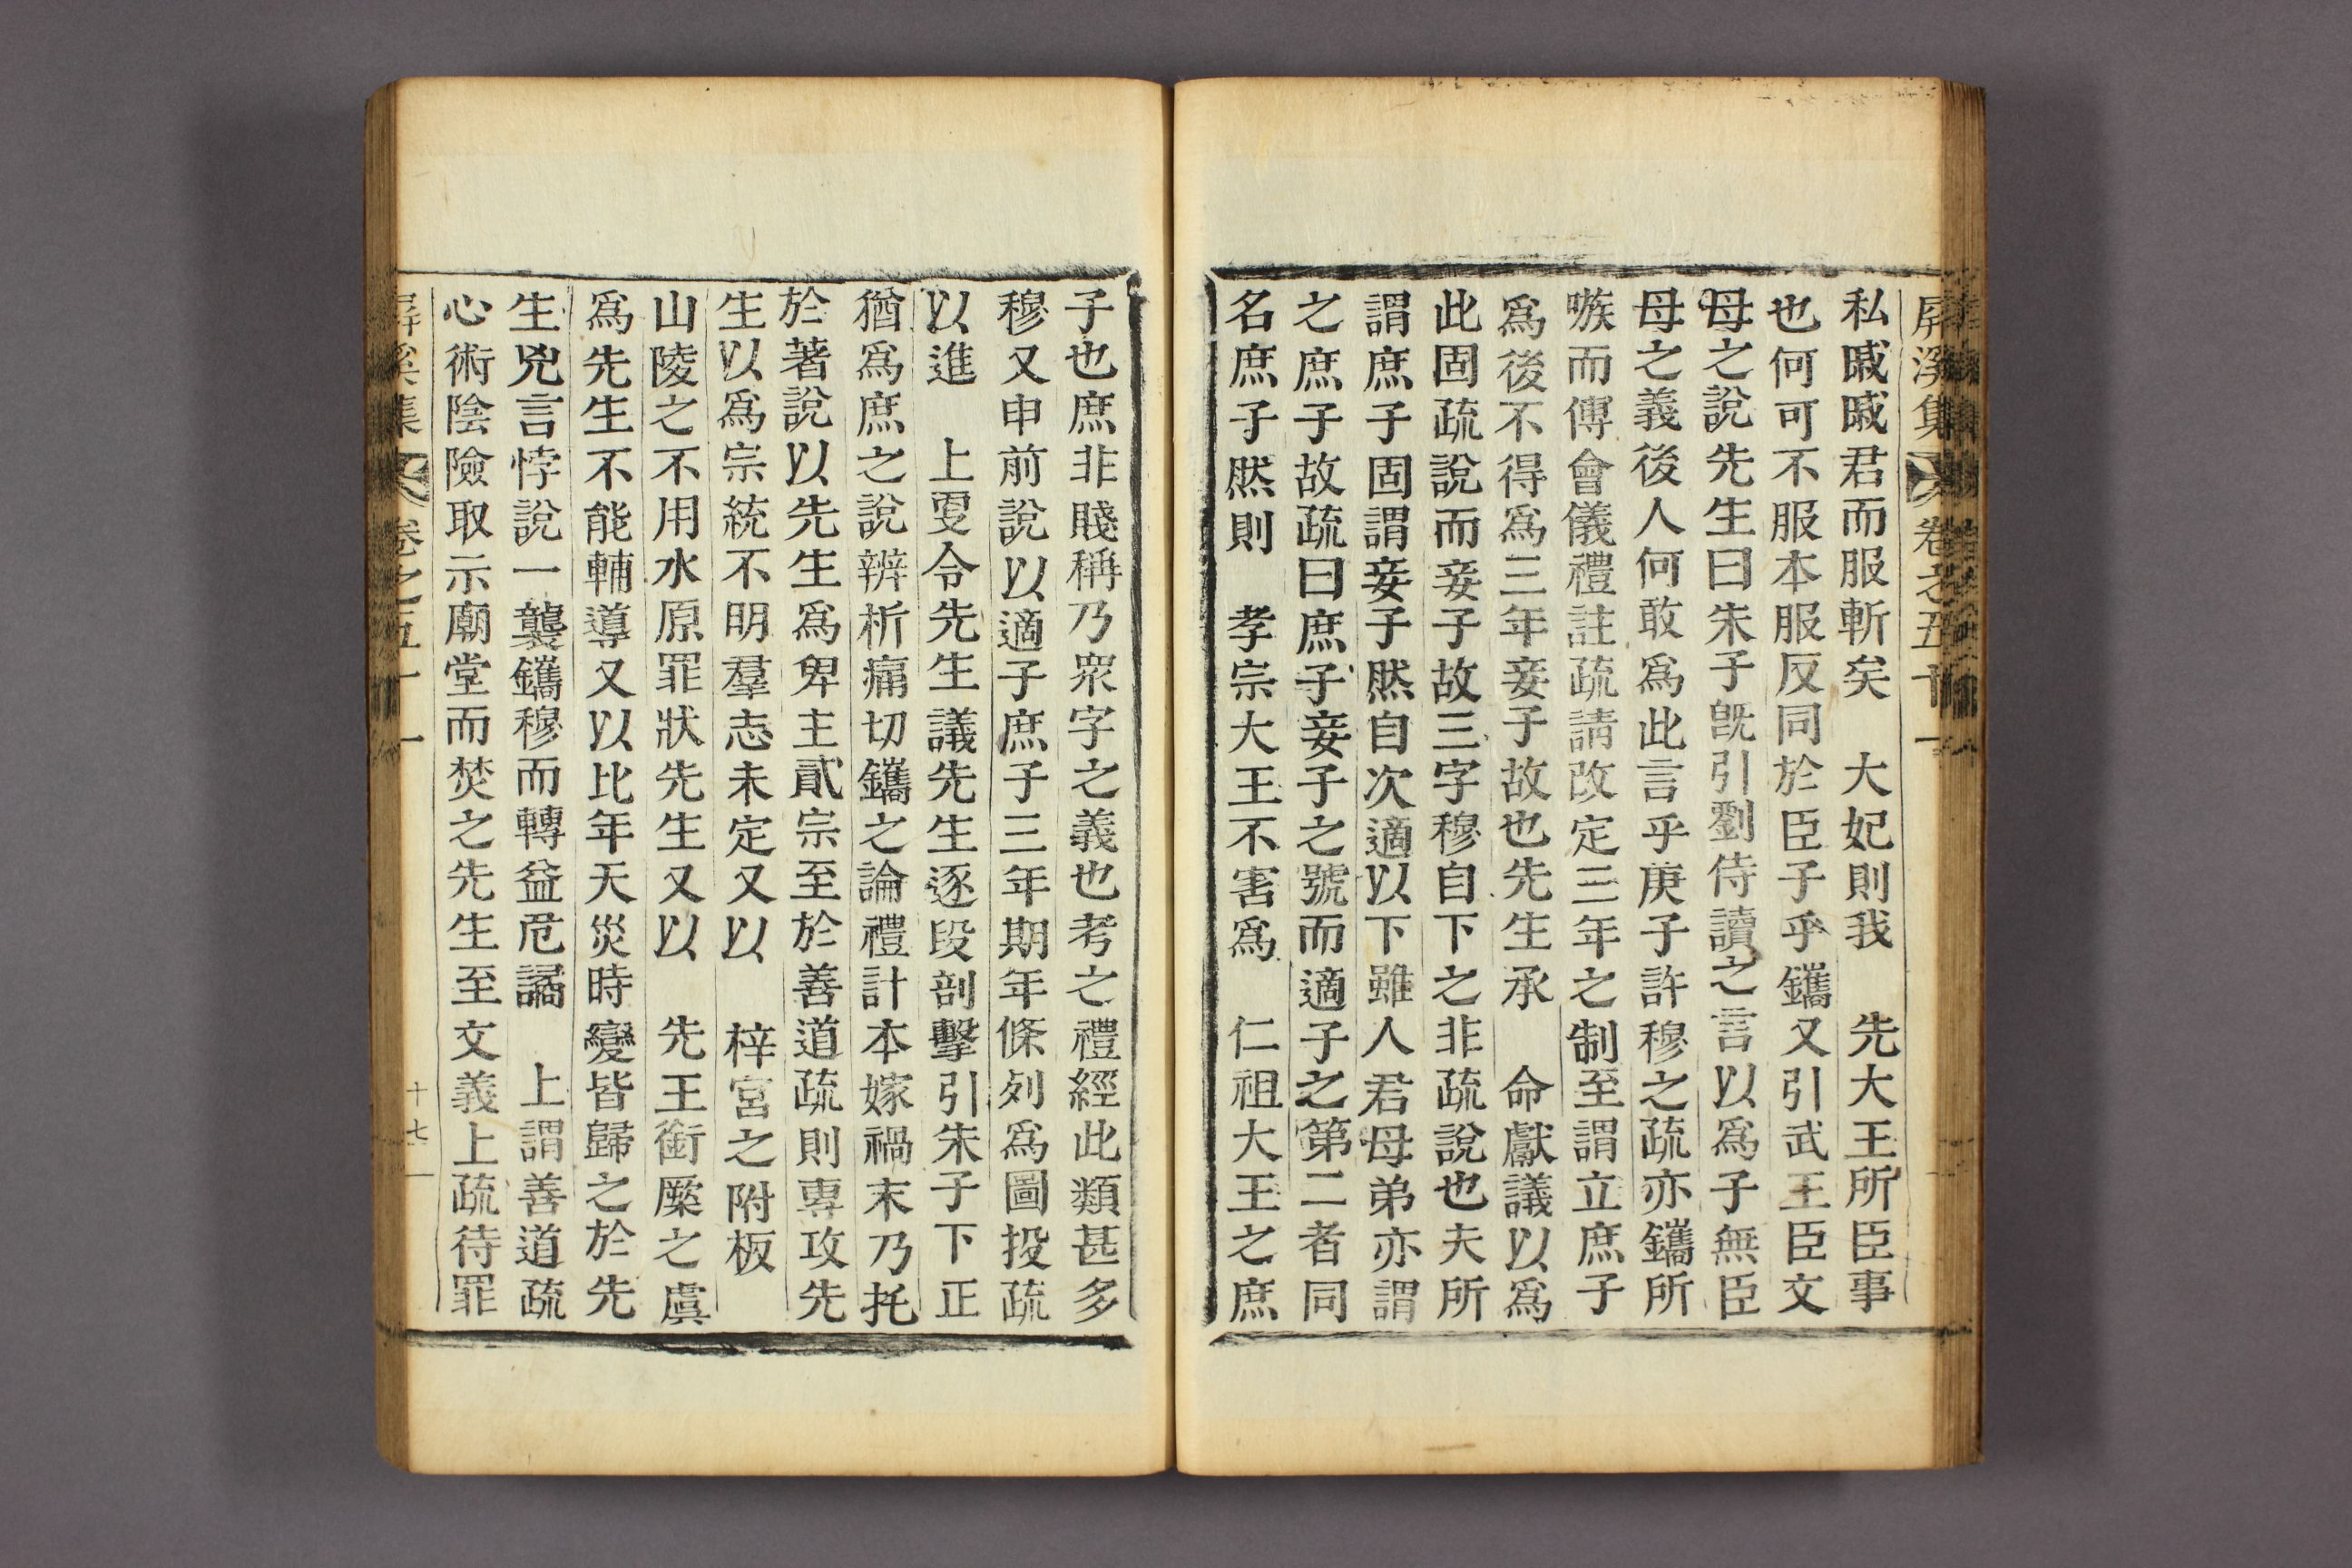 屛溪集 卷之五十一
私戚戚君而服斬矣 大妃則我 先大王所臣事
也何可不服本服反同於臣子乎鑴又引武王臣文
母之說先生曰朱子旣引劉侍讀之言以爲子無臣
母之義後人何敢爲此言乎庚子許穆之疏亦鑴所
嗾而傅會儀禮註疏請改定三年之制至謂立庶子
爲後不得爲三年妾子故也先生承 命獻議以爲
此固疏說而妾子故三字穆自下之非疏說也夫所
謂庶子固謂妾子然自次適以下雖人君母弟亦謂
之庶子故疏曰庶子妾子之號而適子之第二者同
名庶子然則 孝宗大王不害爲 仁祖大王之庶
子也庶非賤稱乃衆字之義也考之禮經此類甚多
穆又申前說以適子庶子三年期年條列爲圖投疏
以進 上更令先生議先生逐段剖擊引朱子下正
猶爲庶之說辨析痛切鑴之論禮計本嫁禍末乃托
於著說以先生爲卑主貳宗至於善道疏則專攻先
生以爲宗統不明羣志未定又以 梓宮之附板
山陵之不用水原罪狀先生又以 先王銜橜之虞
爲先生不能輔導又以比年天災時變皆歸之於先
生兇言悖說一襲鑴穆而轉益危譎 上謂善道疏
心術陰險取示廟堂而焚之先生至文義上疏待罪
屛溪集 卷之五十一 十七